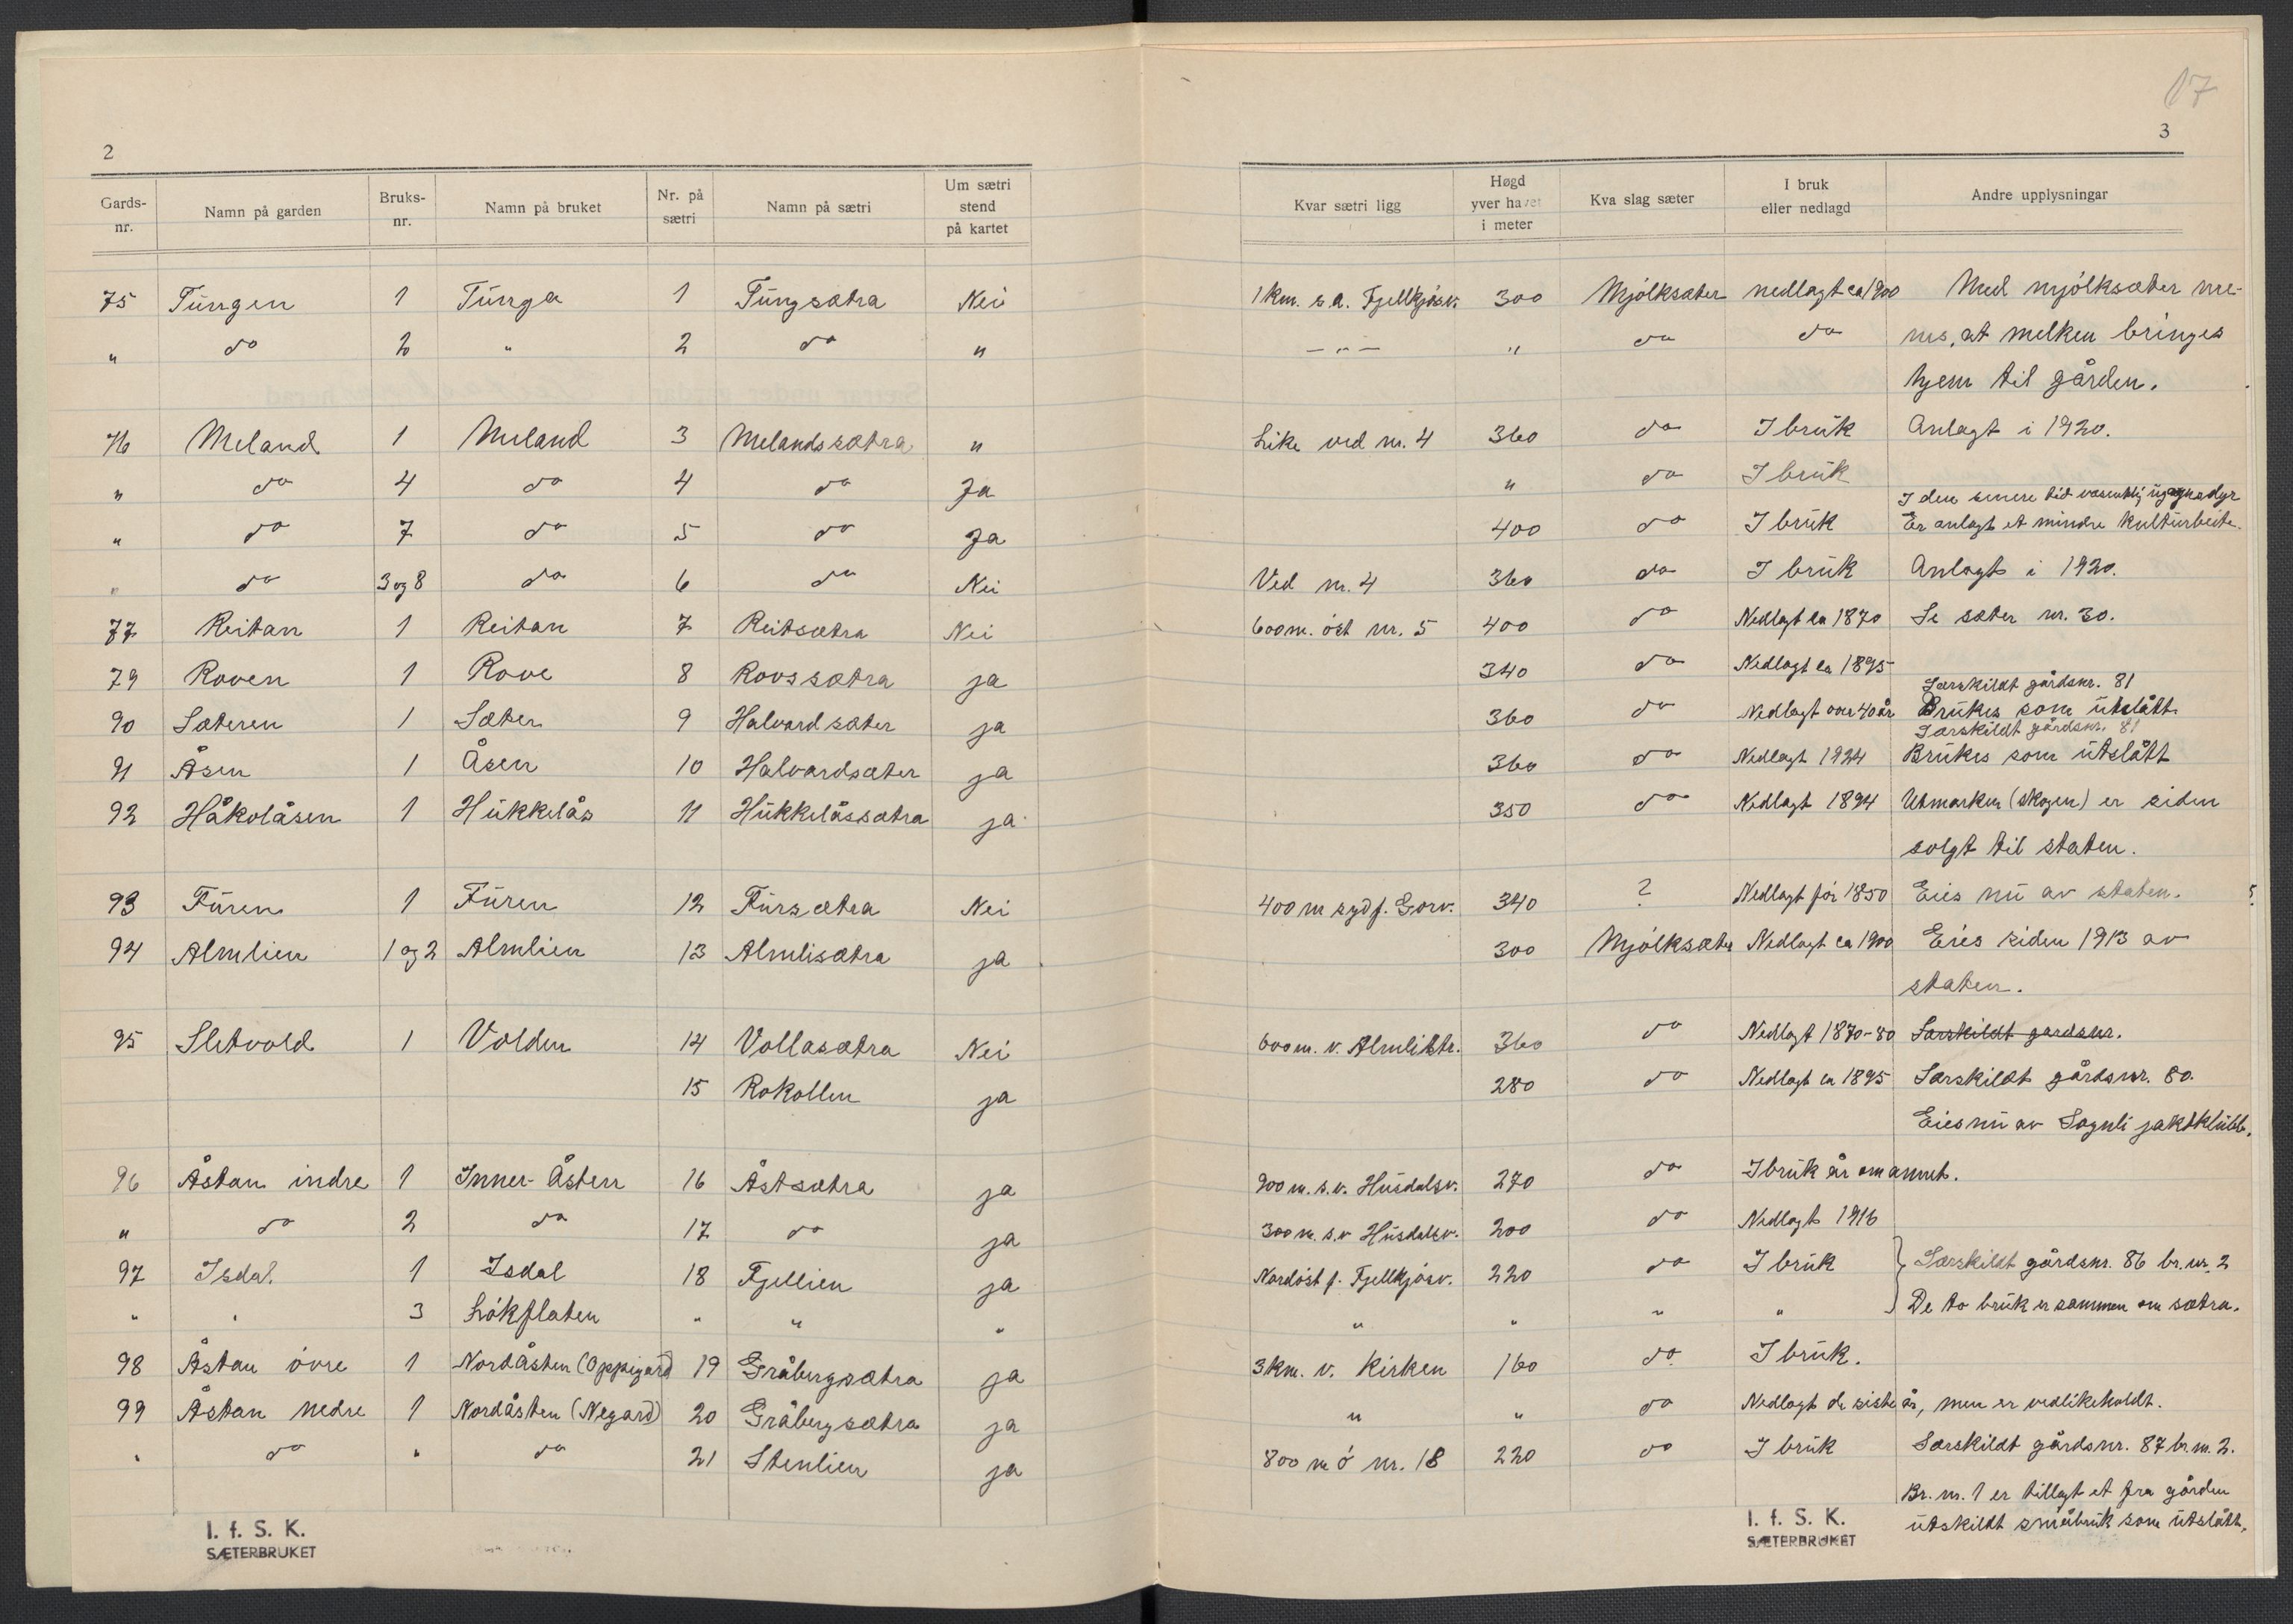 17
2
3
Gards-nr. Namn på garden Bruks-nr. Namn på bruket Nr. på sætri Namn på sætri Um sætri stend på kartet Kvar sætri ligg Høgd yver havet i meter Kva slag sæter I bruk eller nedlagd Andre upplysningar
75 Tungen 1 Tunga 1 Tungsætra Nei 1 km. s.a. Fjellkjøsv. 300 Mjølksæter nedlagt ca 1900 Med mjølksæter me-
" do 2 " 2 do " — " — " do do nes, at melken bringes
hjem til gården.
76 Meland 1 Meland 3 Melandssætra " Like ved nr. 4 360 do I bruk Anlagt i 1920.
" do 4 do 4 do Ja " do I bruk
I den senere tid vesentlig ungnadyr
" do 7 do 5 do Ja 400 do I bruk Er anlagt et mindre kulturbeite.
" do 3 og 8 do 6 do Nei Ved nr. 4 360 do I bruk Anlagt i 1920.
77 Reitan 1 Reitan 7 Reitsætra Nei 600 m. øst nr. 5 400 do Nedlagt ca 1870 Se sæter nr. 30.
79 Roven 1 Rove 8 Rovssætra ja 340 do Nedlagt ca 1895
Særskildt gårdsnr. 81
90 Sæteren 1 Sæter 9 Halvardsæter ja 360 do Nedlagt over 40 år Brukes som utslått
Særskildt gårdsnr. 81
91 Åsen 1 Åsen 10 Halvardsæter ja 360 do Nedlagt 1924 Brukes som utslått
92 Håkolåsen 1 Hukkelås 11 Hukkelåssætra ja 350 do Nedlagt 1894 Utmarken (skogen) er siden
solgt til staten.
93 Furen 1 Furen 12 Fursætra Nei 400 m syd f. Gorv. 340 ? Nedlagt før 1850 Eies nu av staten.
94 Almlien 1 og 2 Almlien 13 Almlisætra ja 300 Mjølksæter Nedlagt ca 1900 Eies siden 1913 av
staten.
95 Sletvold 1 Volden 14 Vollasætra Nei 600 m. v. Almlistr. 360 do Nedlagt 1870-80 Særskildt gardsnr.
15 Rokollen ja 280 do Nedlagt ca 1895 Særskildt gårdsnr. 80.
Eies nu av Sognli jaktklubb.
96 Åstan indre 1 Inner-Åsten 16 Åstsætra ja 900 m. s.v. Husdalsv. 270 do I bruk år om annet.
" do 2 do 17 do ja 300 m. s.v Husdalsv. 200 do Nedlagt 1916
97 Isdal 1 Isdal 18 Fjellien ja Nordøst f. Fjellkjøsv. 220 do I bruk } Særskildt gårdsnr. 86 br. nr. 2
" " 3 Løkflaten " " " " " " " De to bruk er sammen om sætra.
98 Åstan övre 1 Nordåsten (Oppigard) 19 Gråbergsætra ja 3 km. v. Kirken 160 do I bruk.
99 Åstan nedre 1 Nordåsten (Negard) 20 Gråbergsætra ja " " do Nedlagt de siste år, men er vedlikeholdt.
" do " do 21 Stenlien ja 800 m ø nr. 18 220 do I bruk Særskildt gårdsnr. 87 br. nr. 2.
Br. nr. 1 er tillagt et fra gården
utskildt småbruk som utslått.
I. f. S. K.
SÆTERBRUKET
I. f. S. K.
SÆTERBRUKET